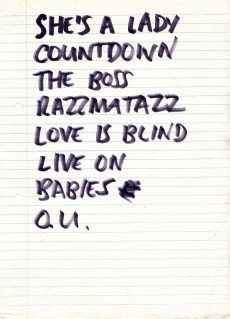 SHE'S A LADY
COUNTDOWN
THE BOSS
RAZZMATAZZ
LOVE IS BLIND
LIVE ON
BABIES
O.U.